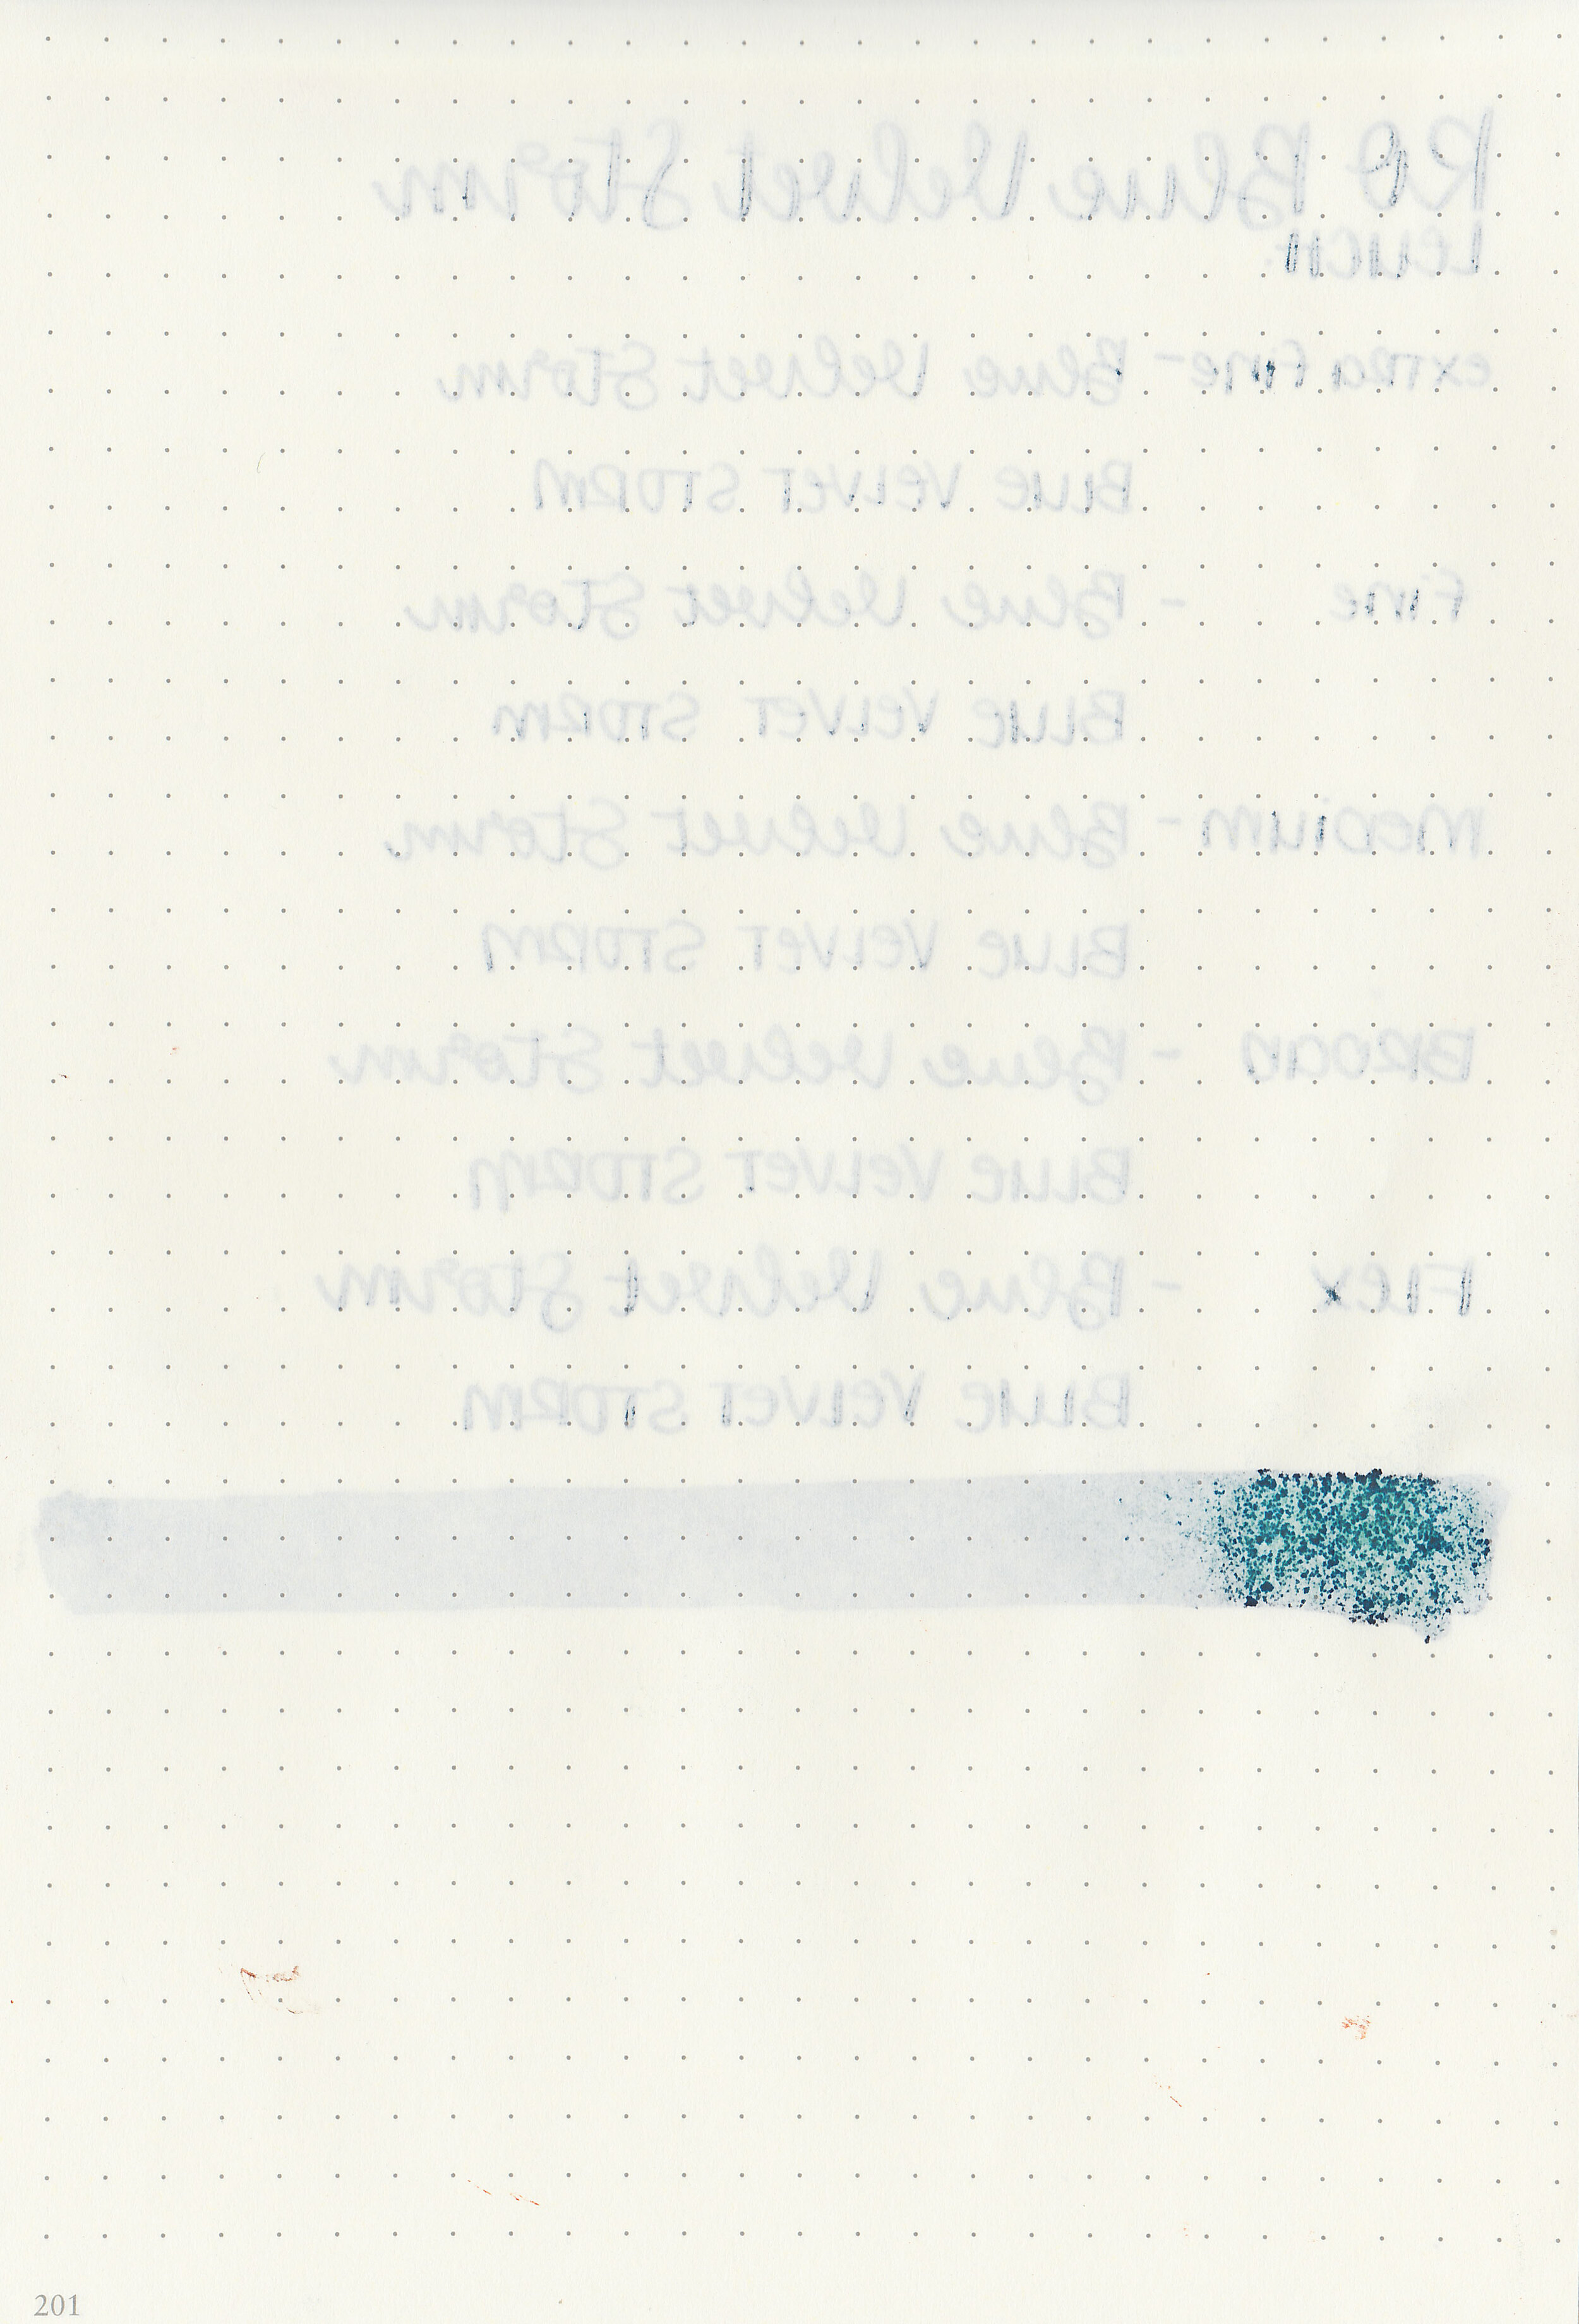 RO Blue Velvet Storm
Leucht
extra fine - Blue Velvet Storm
BLUE VELVET STORM
fine - Blue Velvet Storm
BLUE VELVET STORM
MEDIUM - Blue Velvet Storm
BLUE VELVET STORM
BROAD - Blue Velvet Storm
BLUE VELVET STORM
FLEX - Blue Velvet Storm
BLUE VELVET STORM
201